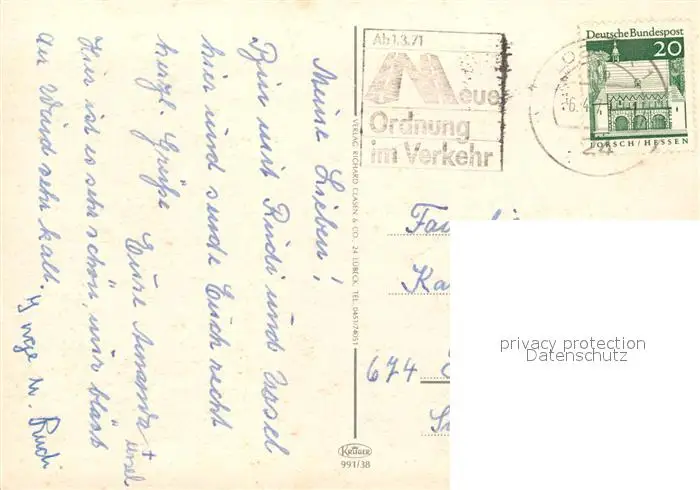 Meine Lieben!
Bin mit Rudi und Ursel
hier und sende Euch recht
herzl. Grüße
Eure Amanda +
Ursel
Hier ist es sehr schön, nur bläst
der Wind sehr kalt.
Inge u. Rudi
VERLAG RICHARD CLASEN & CO., 24 LÜBECK, TEL. 0451/74051
KRÜGER
991/38
Ab 1.3.71
Neue
Ordnung
im Verkehr
24
Deutsche Bundespost
20
LORSCH/HESSEN
674
privacy protection
Datenschutz